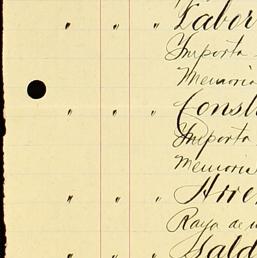 " " " Labor
Importa
Memoria
" " " Const
Importa
Memoria
" " "
Raya de
" " " Sald